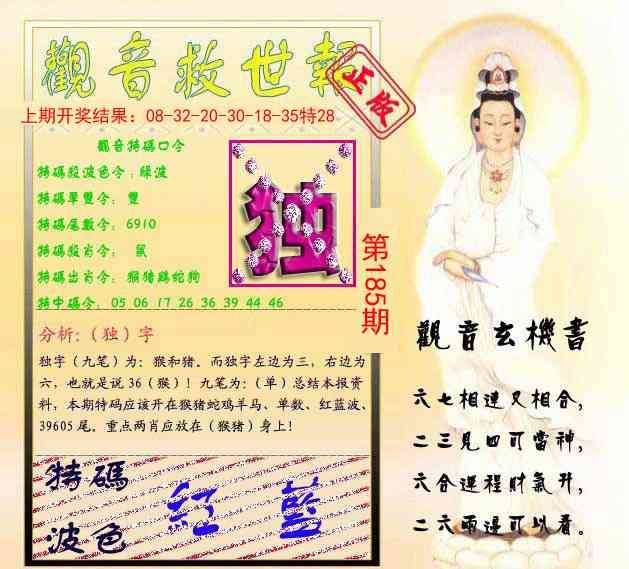 觀音救世報
正版
上期开奖结果：08-32-20-30-18-35特28
觀音特碼口令
特碼殺波色令：綠波
特碼單雙令： 雙
特碼尾數令： 6910
特碼殺肖令： 鼠
特碼出肖令： 猴猪鷄蛇狗
特中碼令： 05 06 17 26 36 39 44 46
独
第185期
分析:（独）字
独字（九笔）为：猴和猪。而独字左边为三，右边为
六，也就是说 36（猴）！九笔为：（单）总结本报资
料：本期特码应该开在猴猪蛇鸡羊马、单数、红蓝波、
39605 尾。重点两肖应放在（猴猪）身上！
特碼
波色
红 蓝
觀音玄機書
六七相連又相合，
二三見四可當神，
六合運程財氣升，
二六兩邊可以看。